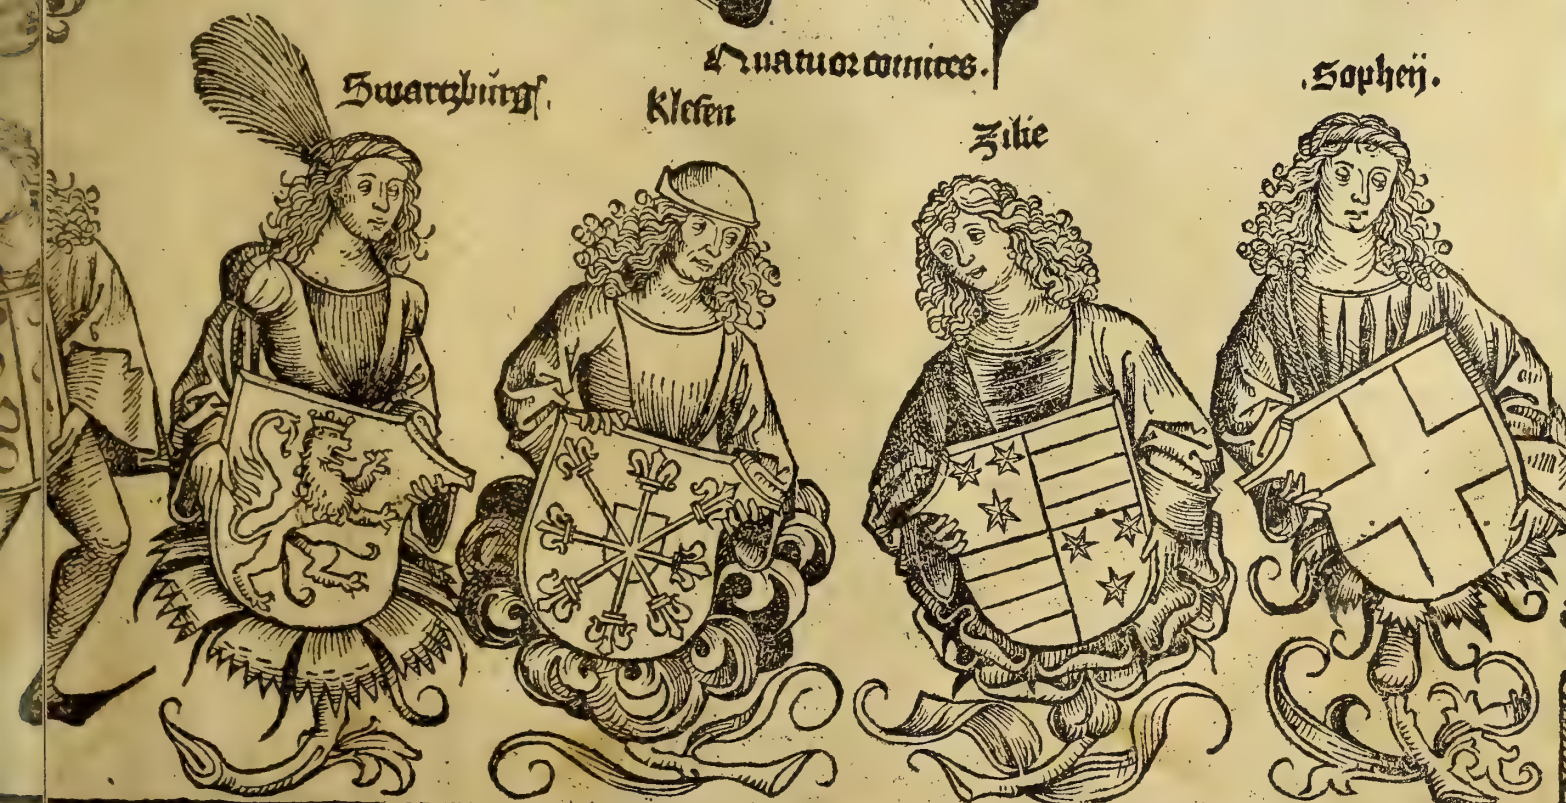 Quatuor comites.
Swartzburg.
Klefen
Zilie
.Sopheij.